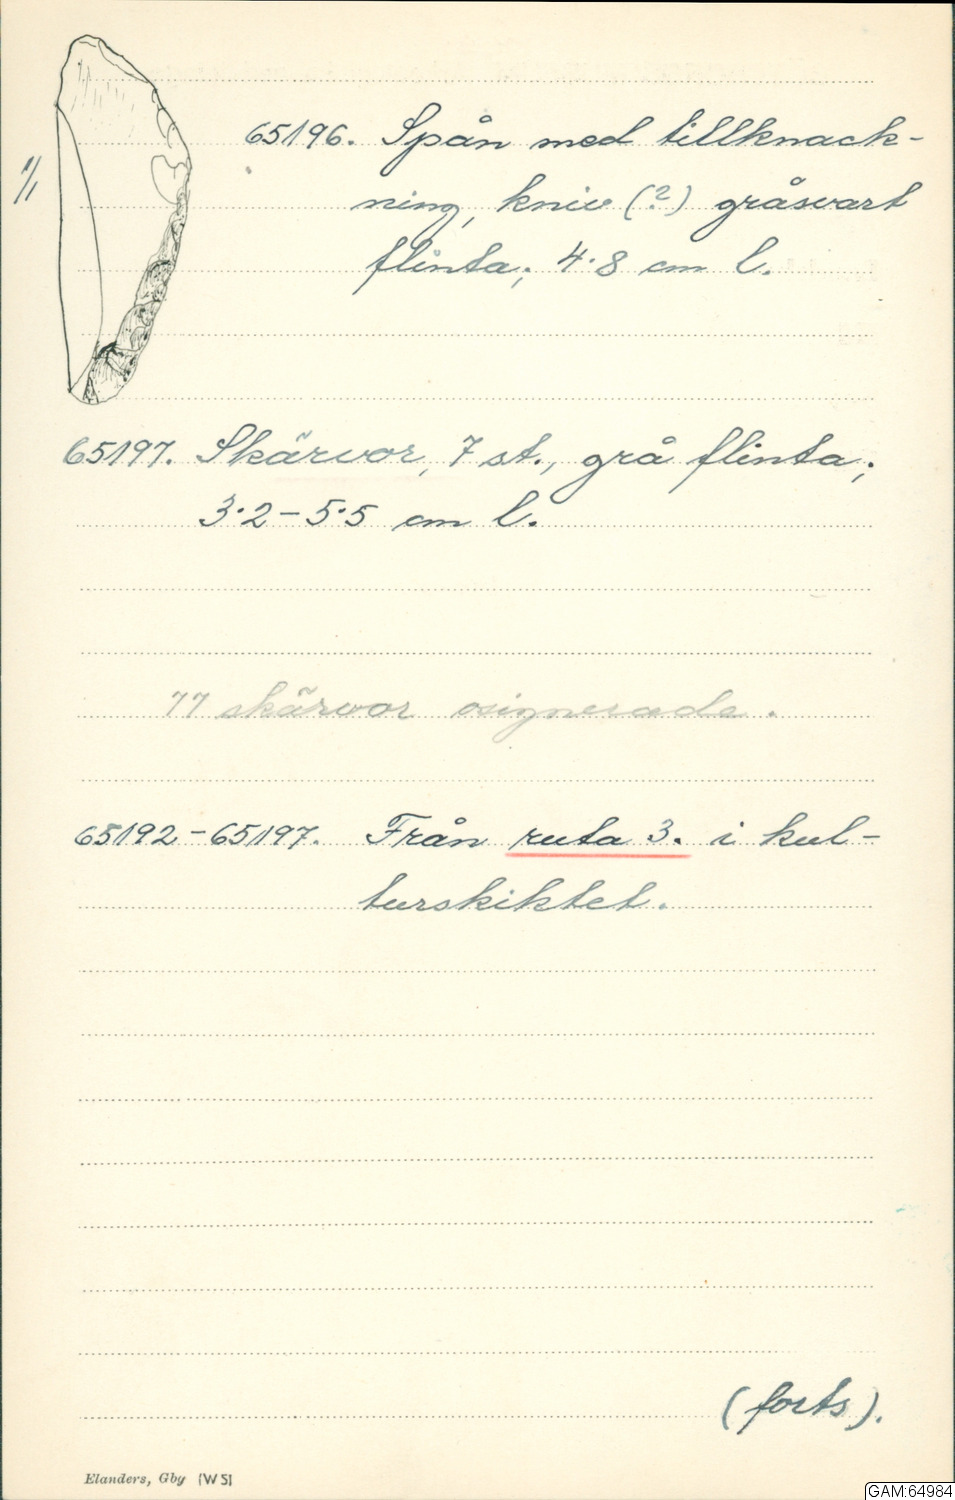 1/1
65196. Spån med tillknack-
ning, kniv (?) gråsvart
flinta; 4·8 cm l.
65197. Skärvor, 7 st., grå flinta;
3·2 – 5·5 cm l.
77 skärvor osignerade.
65192 – 65197. Från ruta 3. i kul-
turskiktet.
(forts).
Elanders, Gbg (WS)
GAM:64984